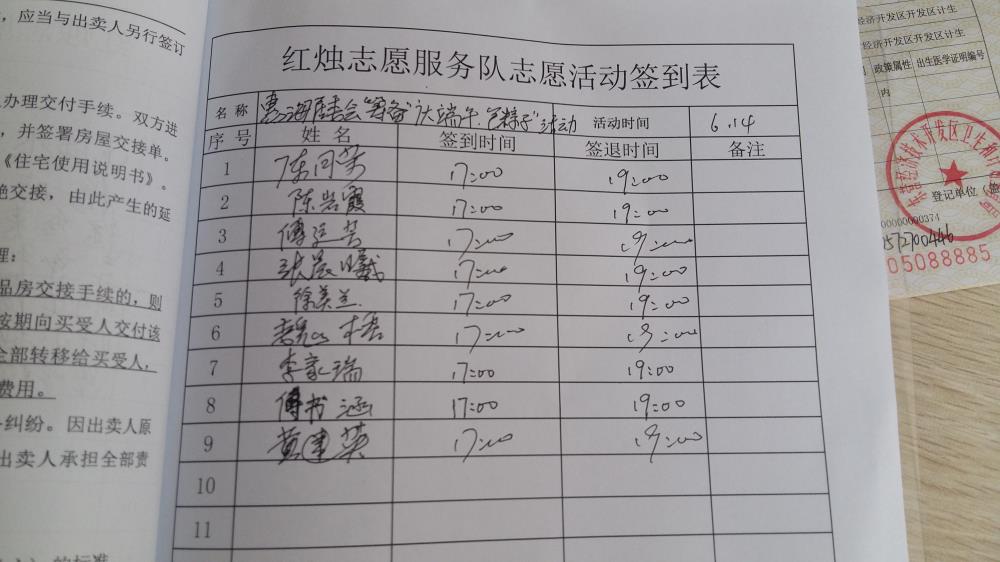 ，应当与出卖人另行签订
办理交付手续。双方进
，并签署房屋交接单。
《住宅使用说明书》。
绝交接，由此产生的延
理：
品房交接手续的，则
按期向买受人交付该
全部转移给买受人，
费用。
纠纷。因出卖人原
出卖人承担全部责
的标准
红烛志愿服务队志愿活动签到表
名称 惠海居委会 端午 包粽子"活动 活动时间 6.14
序号 姓名 签到时间 签退时间 备注
1 17:00 19:00
2 陈岩霞 17:00 19:00
3 17:00 19:00
4 张晨曦 17:00 19:00
5 徐美兰 17:00 19:00
6 17:00 19:00
7 李家瑞 17:00 19:00
8 傅书涵 17:00 19:00
9 黄建英 17:00 19:00
10
11
经济开发区开发区计生
经济开发区开发区计生
政策属性 出生医学证明编号
内
登记单位
00000000374
0572700446
05088885